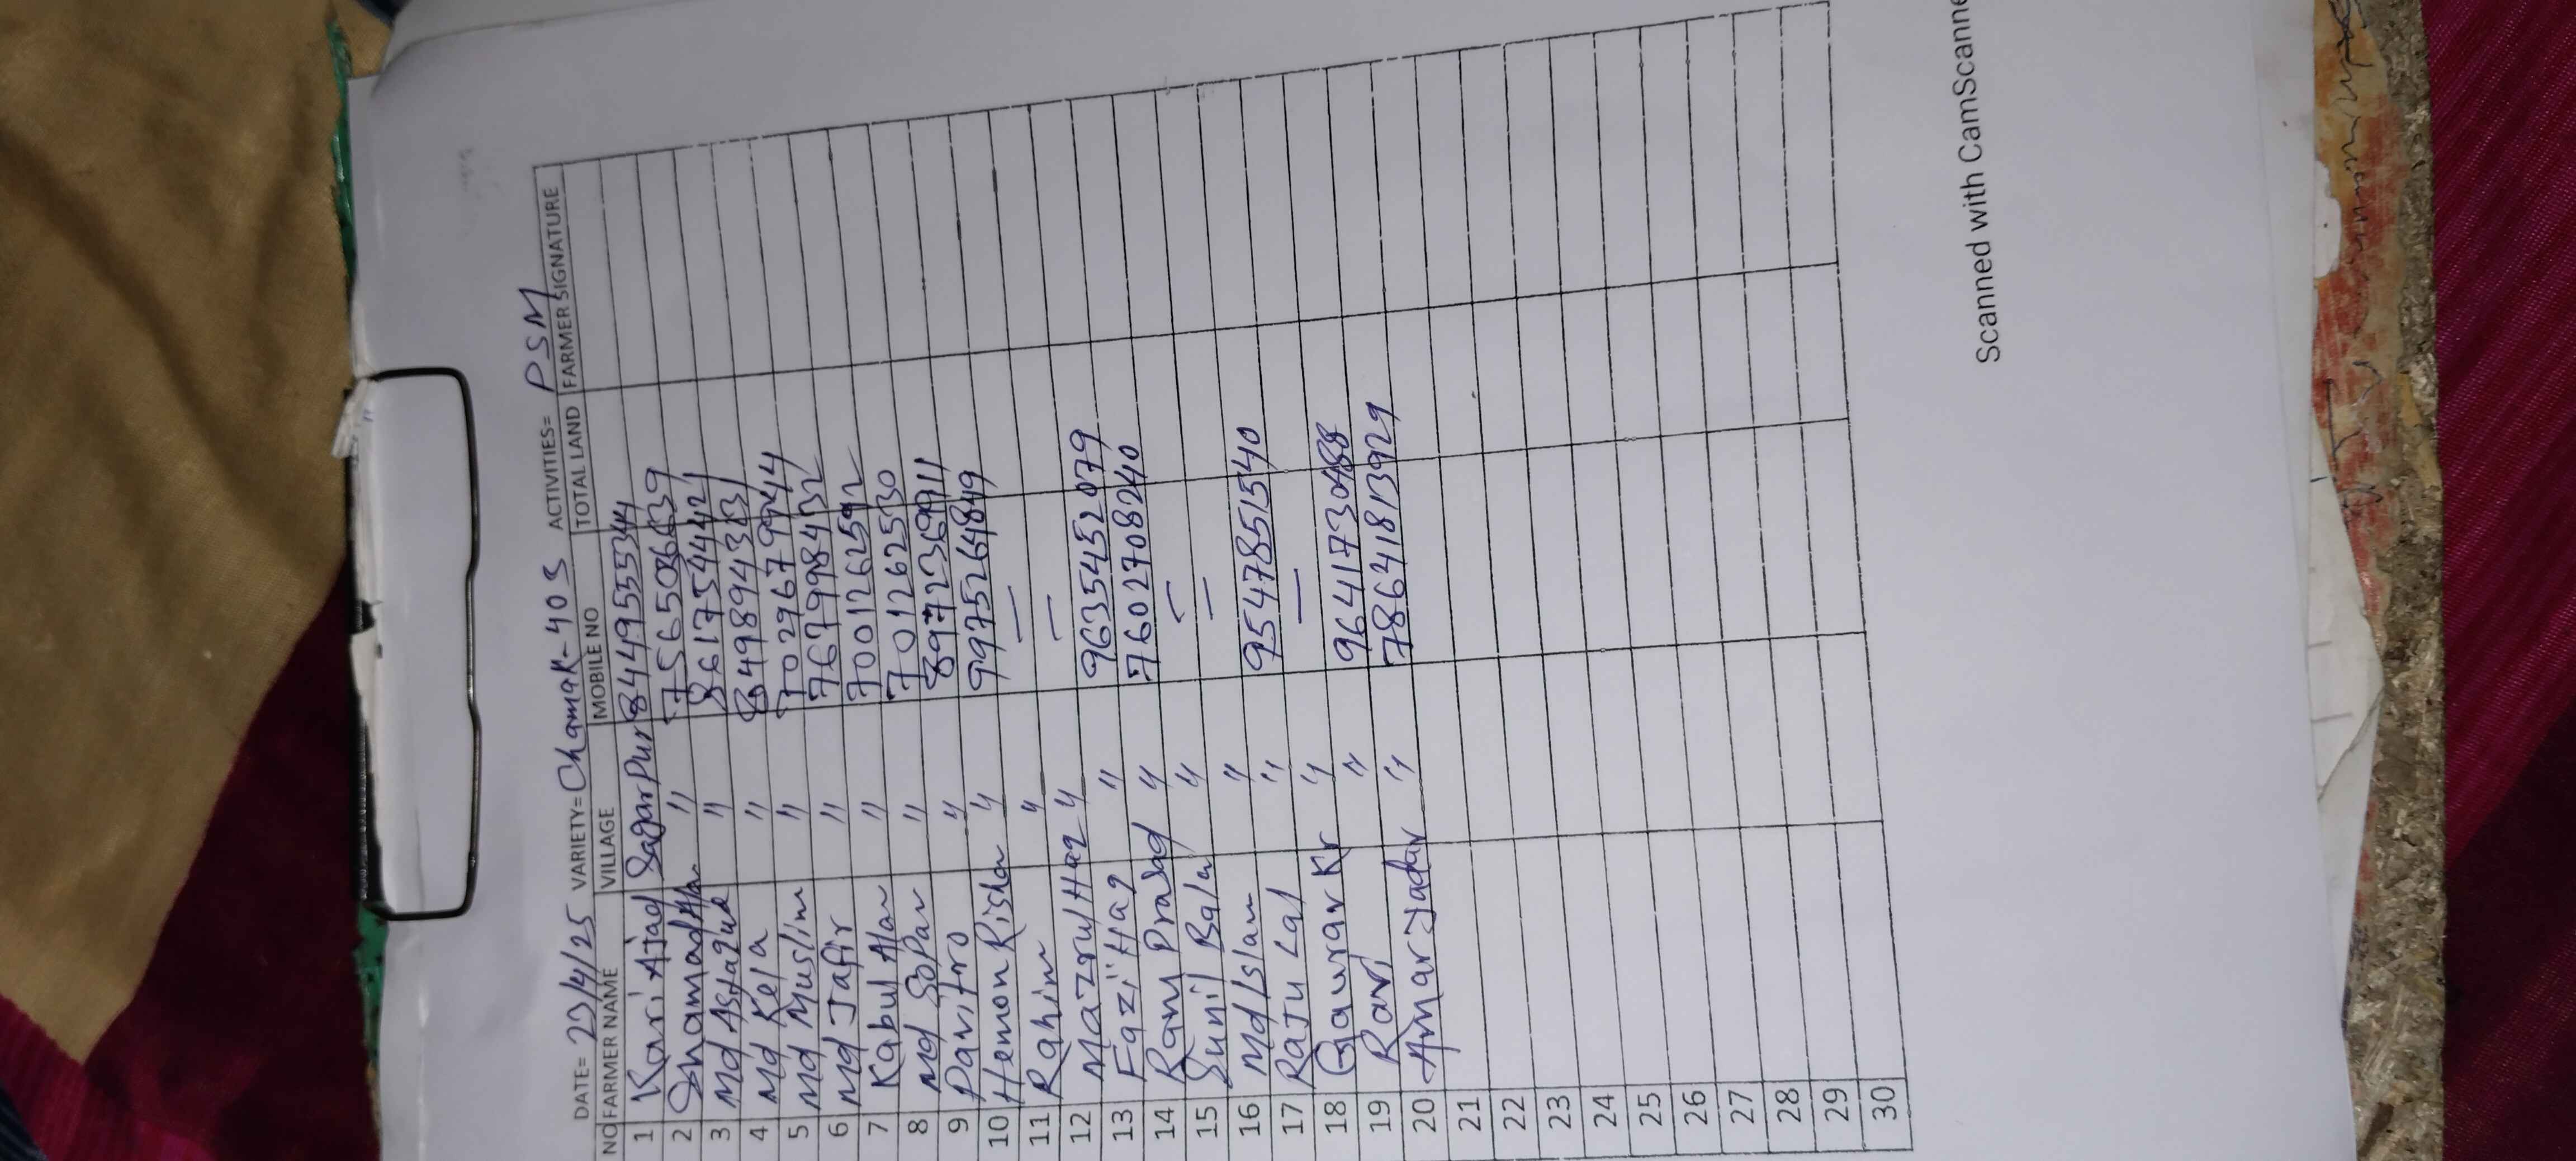 DATE= 23/4/25 VARIETY= Chamak-403 ACTIVITIES= PSM
NO FARMER NAME VILLAGE MOBILE NO TOTAL LAND FARMER SIGNATURE
1 Kari Ajad Sagarpur 8449555344
2 Shamad Alam " 7565086639
3 Md Asfaque " 8617544421
4 Md Kela " 8498943831
5 Md Muslim " 7029679944
6 Md Jafir " 7679998432
7 Kabul Alam " 7001262592
8 Md Sopan " 701262530
9 Pavitro " 8972369911
10 Hemon Rishi " 9975264849
11 Rahim " —
12 Mazrul Haq " —
13 Fazil Haq " 9635452079
14 Ram Prasad " 7602708240
15 Sunil Bala " —
16 Md Islam " —
17 Raju Lal " 9547851540
18 Gaurav Kr " —
19 Ravi " 9641730488
20 Amar Jadav " 7864183929
21
22
23
24
25
26
27
28
29
30
Scanned with CamScanne